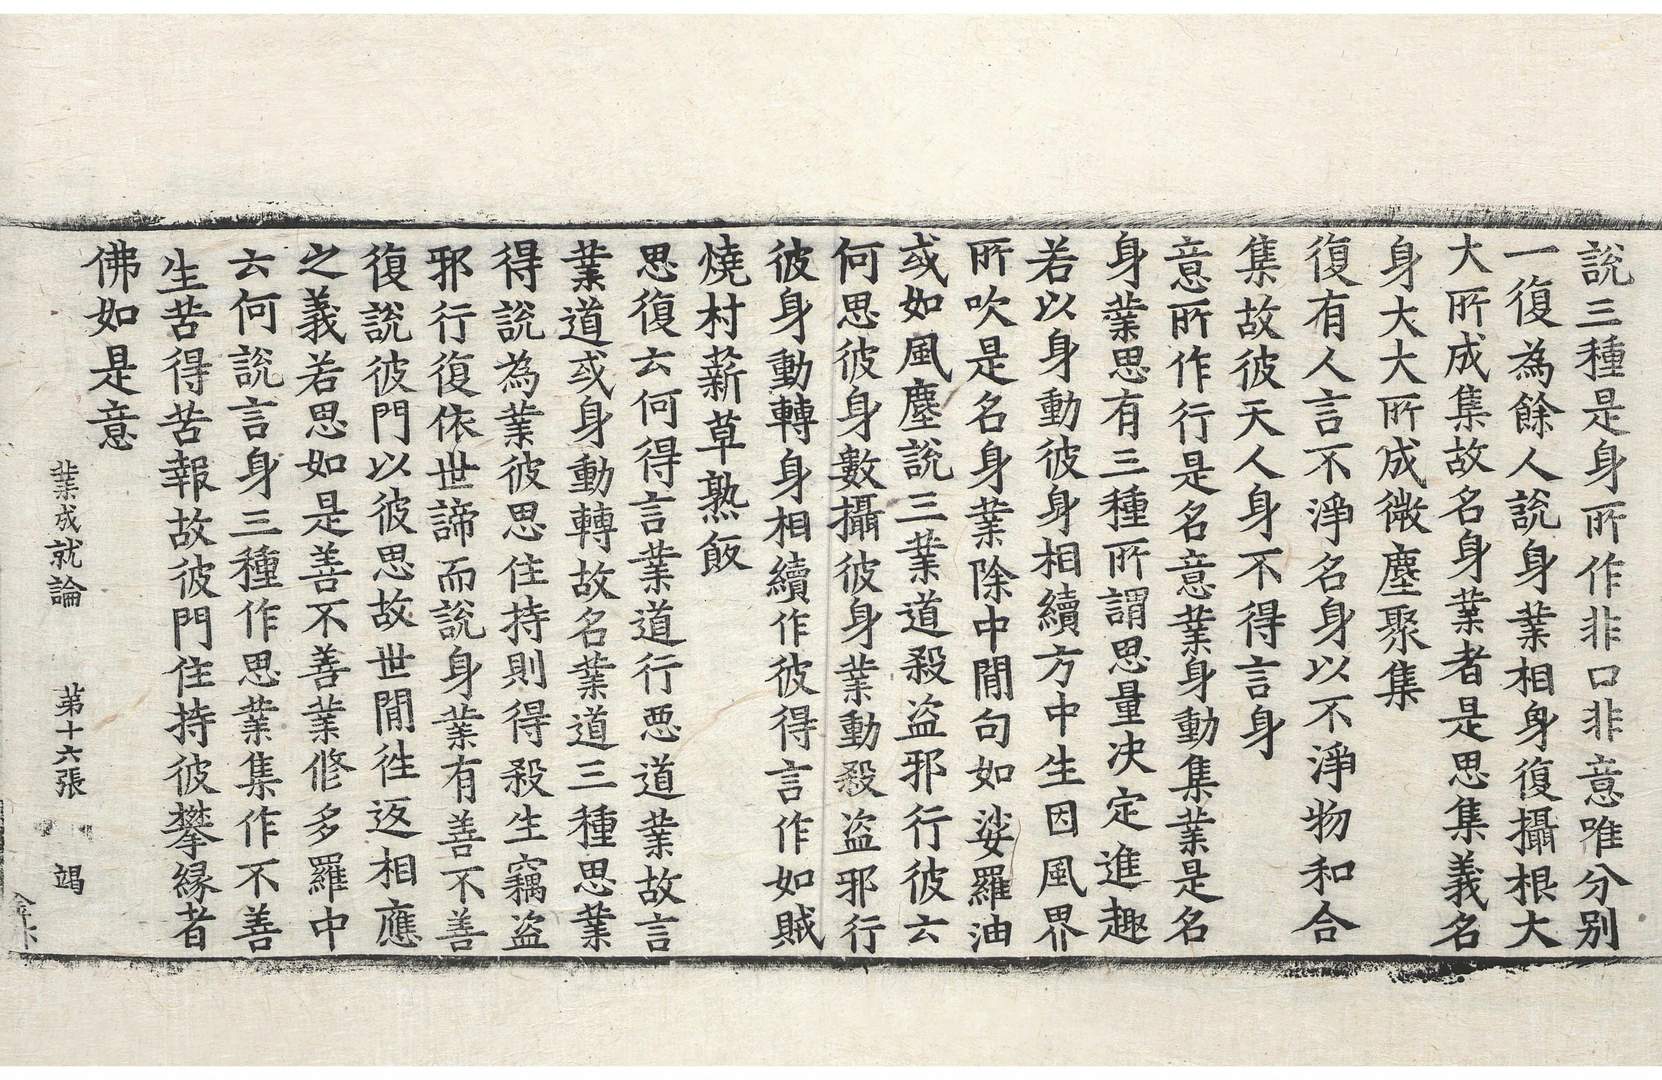 說三種是身所作非口非意唯分別
一復為餘人說身業相身復攝根大
大所成集故名身業者是思集義名
身大大所成微塵聚集
復有人言不淨名身以不淨物和合
集故彼天人身不得言身
意所作行是名意業身動集業是名
身業思有三種所謂思量決定進趣
若以身動彼身相續方中生因風界
所吹是名身業除中閒句如娑羅油
或如風塵說三業道殺盜邪行彼云
何思彼身數攝彼身業動殺盜邪行
彼身動轉身相續作彼得言作如賊
燒村薪草熟飯
思復云何得言業道行惡道業故言
業道或身動轉故名業道三種思業
得說為業彼思住持則得殺生竊盜
邪行復依世諦而說身業有善不善
復說彼門以彼思故世閒往返相應
之義若思如是善不善業修多羅中
云何說言身三種作思業集作不善
生苦得苦報故彼門住持彼攀緣者
佛如是意
業成就論 第十六張 竭